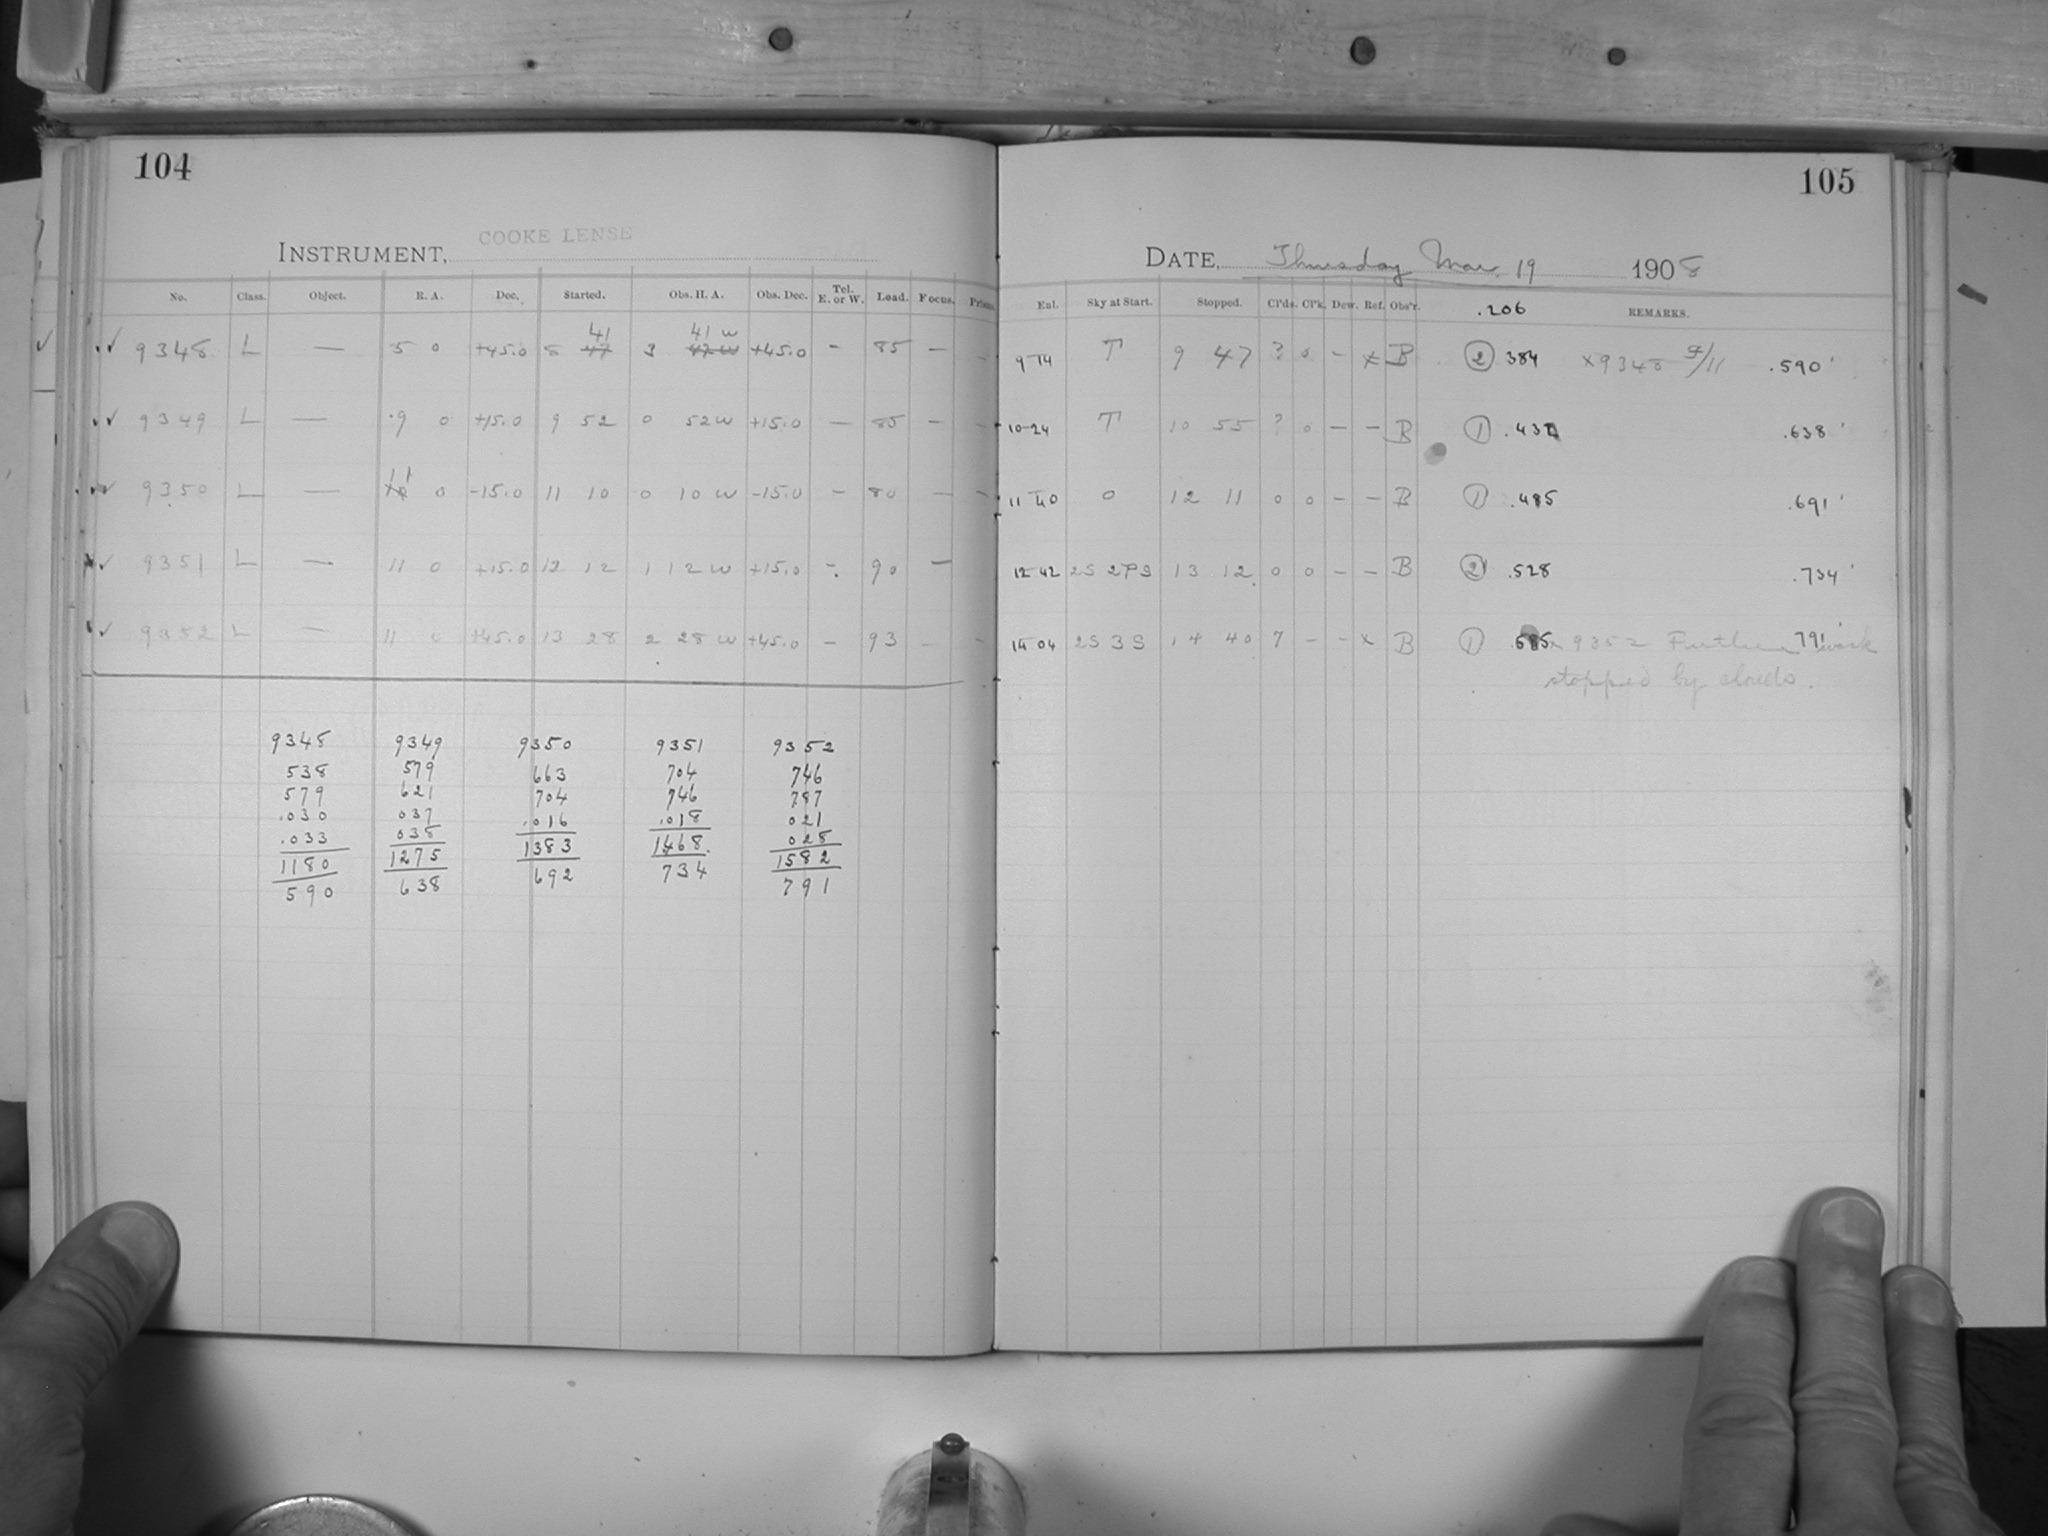 104
COOKE LENSE
INSTRUMENT,
No. Class. Object. R. A. Dec. Started. Obs. H. A. Obs. Dec. Tel. E. or W. Load. Focus. Prism.
✓✓ 9348 L — 5 0 +45.0 8 47 41 3 47 W 41 W +45.0 — 85 — —
✓✓ 9349 L — 9 0 +15.0 9 52 0 52 W +15.0 — 85 — —
✓✓ 9350 L — 11 0 -15.0 11 10 0 10 W -15.0 — 80 — —
✓ 9351 L — 11 0 +15.0 12 12 1 12 W +15.0 — 90 —
✓✓ 9352 L — 11 0 +45.0 13 28 2 28 W +45.0 — 93 — —
9348 9349 9350 9351 9352
538 579 663 704 746
579 621 704 746 787
.030 037 .016 .018 021
.033 038 1383 1468. 028
1180 1275 692 734 1582
590 638 791
105
DATE, Thursday Mar. 19 1908
Ent. Sky at Start. Stopped. Cl'ds. Cl'k. Dew. Ref. Obs'r. .206 REMARKS.
9 14 T 9 47 ? 0 — x B ② .384 x9348 .590
10-24 T 10 55 ? 0 — — B ① .432 .638
11 40 0 12 11 0 0 — — B ① .485 .691
12 42 2S 2PS 13 12 0 0 — — B ② .528 .734
14 04 2S 3S 14 40 7 — — x B ① .585 x 9352 Further work .791
stopped by clouds.